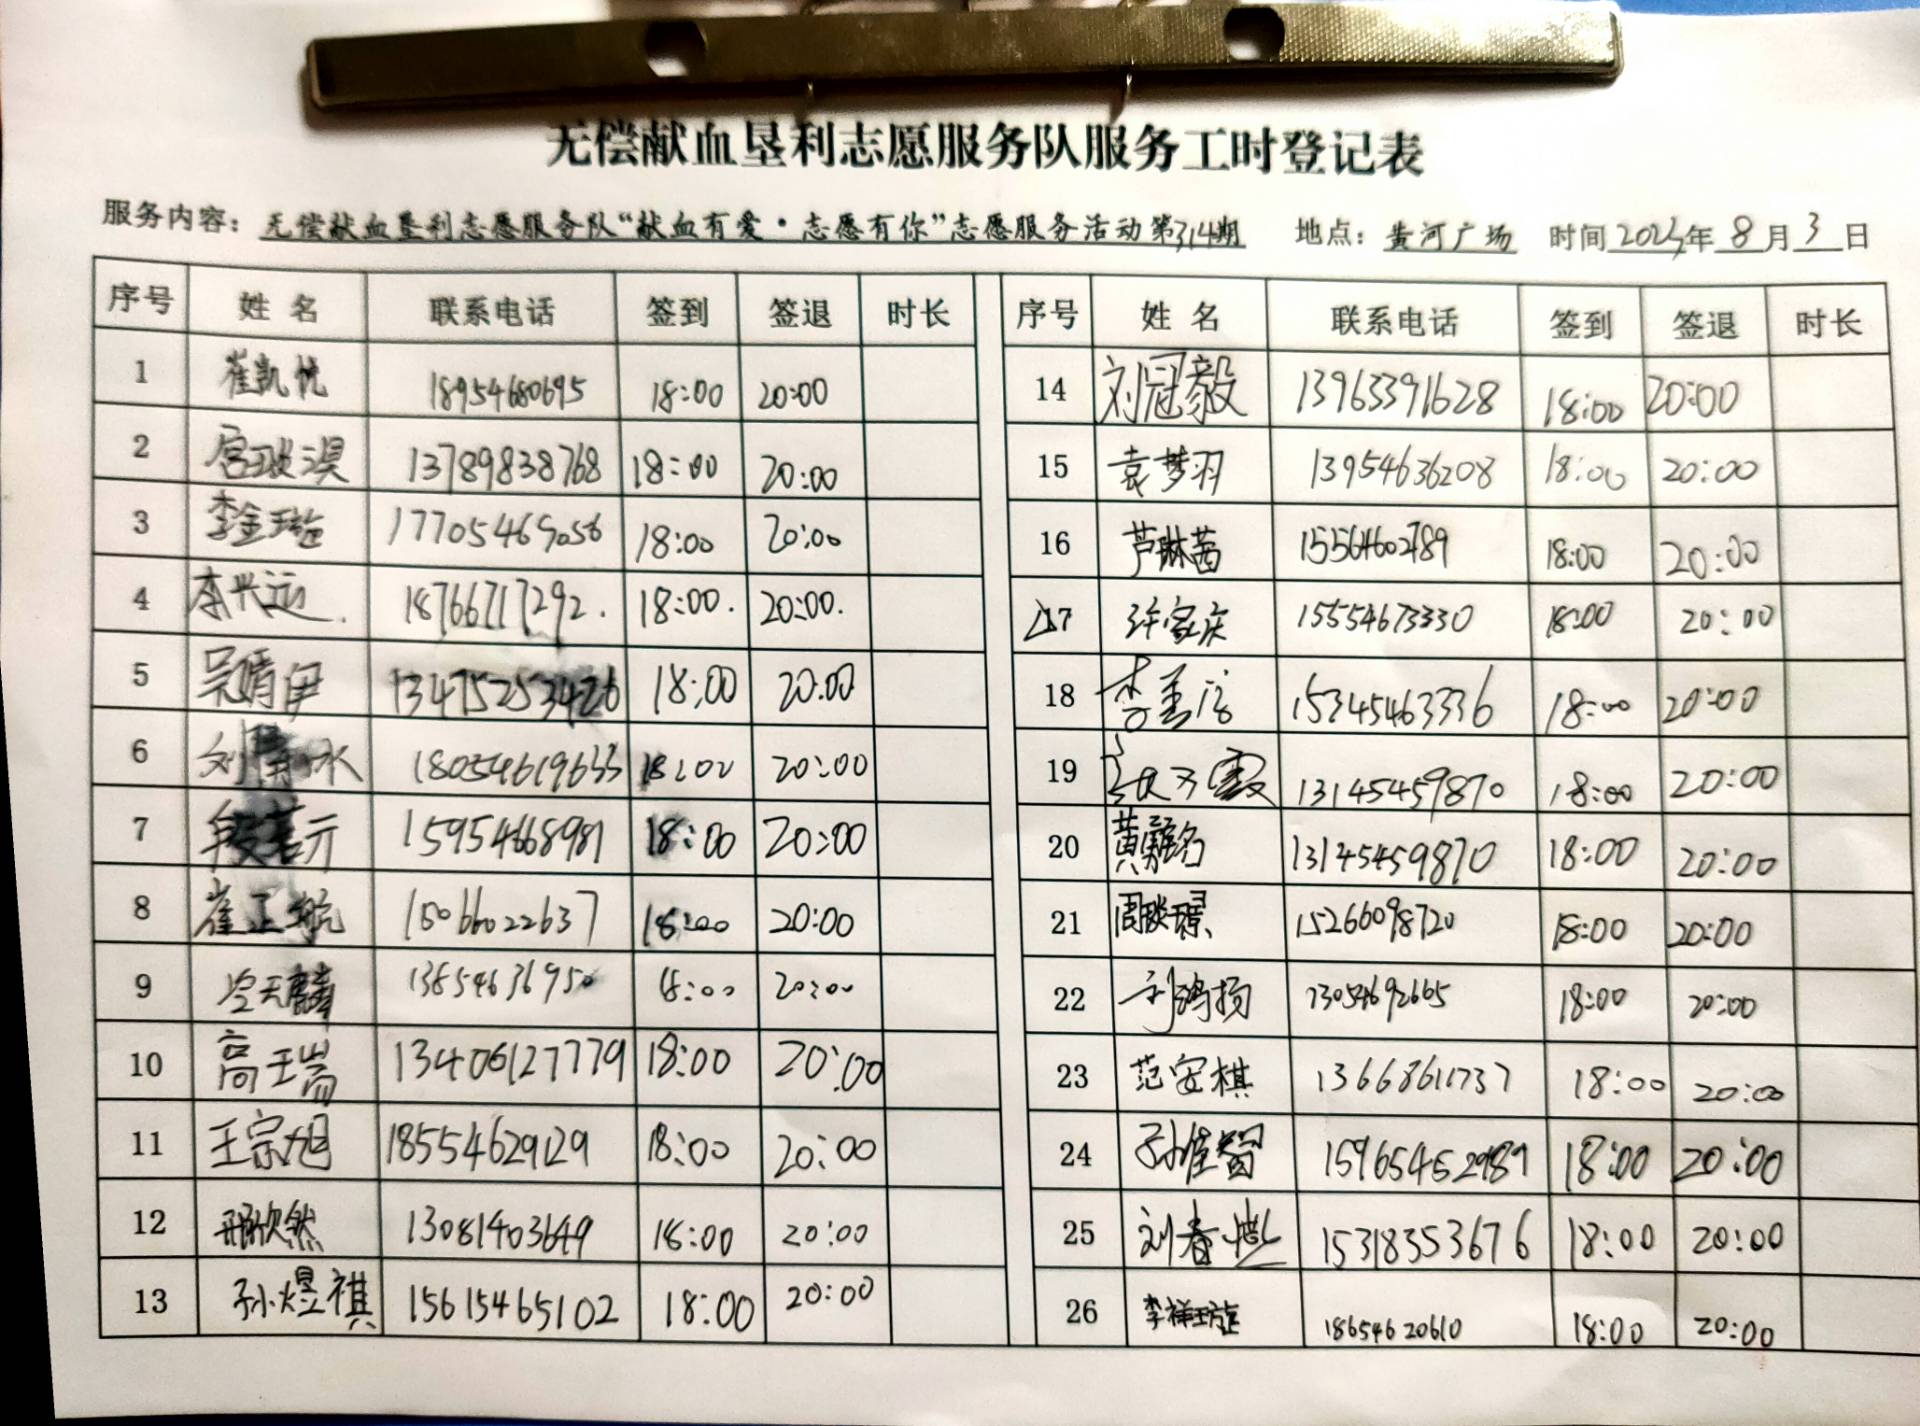 无偿献血垦利志愿服务队服务工时登记表
服务内容：无偿献血垦利志愿服务队“献血有爱·志愿有你”志愿服务活动第314期 地点：黄河广场 时间 年 8 月 3 日
序号 姓名 联系电话 签到 签退 时长 序号 姓名 联系电话 签到 签退 时长
1 崔凯悦 18954680695 18:00 20:00 14 刘冠毅 13963391628 18:00 20:00
2 13789838768 18:00 20:00 15 袁梦羽 13954636208 18:00 20:00
3 李金璇 17705469056 18:00 20:00 16 芦琳茜 15564602789 18:00 20:00
4 李兴远. 18766717292. 18:00. 20:00. 17 许家庆 15554673330 18:00 20:00
5 吴婧伊 18:00 20:00 18 15345463336 18:00 20:00
6 18054619633 18:00 20:00 19 13145459870 18:00 20:00
7 15954668981 18:00 20:00 20 13145459870 18:00 20:00
8 崔正航 15066022637 18:00 20:00 21 15266098720 18:00 20:00
9 18:00 20:00 22 刘鸿扬 13054692665 18:00 20:00
10 高瑞 13406127779 18:00 20:00 23 范安棋 13668611737 18:00 20:00
11 王宗旭 18554629129 18:00 20:00 24 15965452989 18:00 20:00
12 邢欣然 13081403649 18:00 20:00 25 刘春燃 15318353676 18:00 20:00
13 孙煜祺 15615465102 18:00 20:00 26 李祥璇 18654620610 18:00 20:00